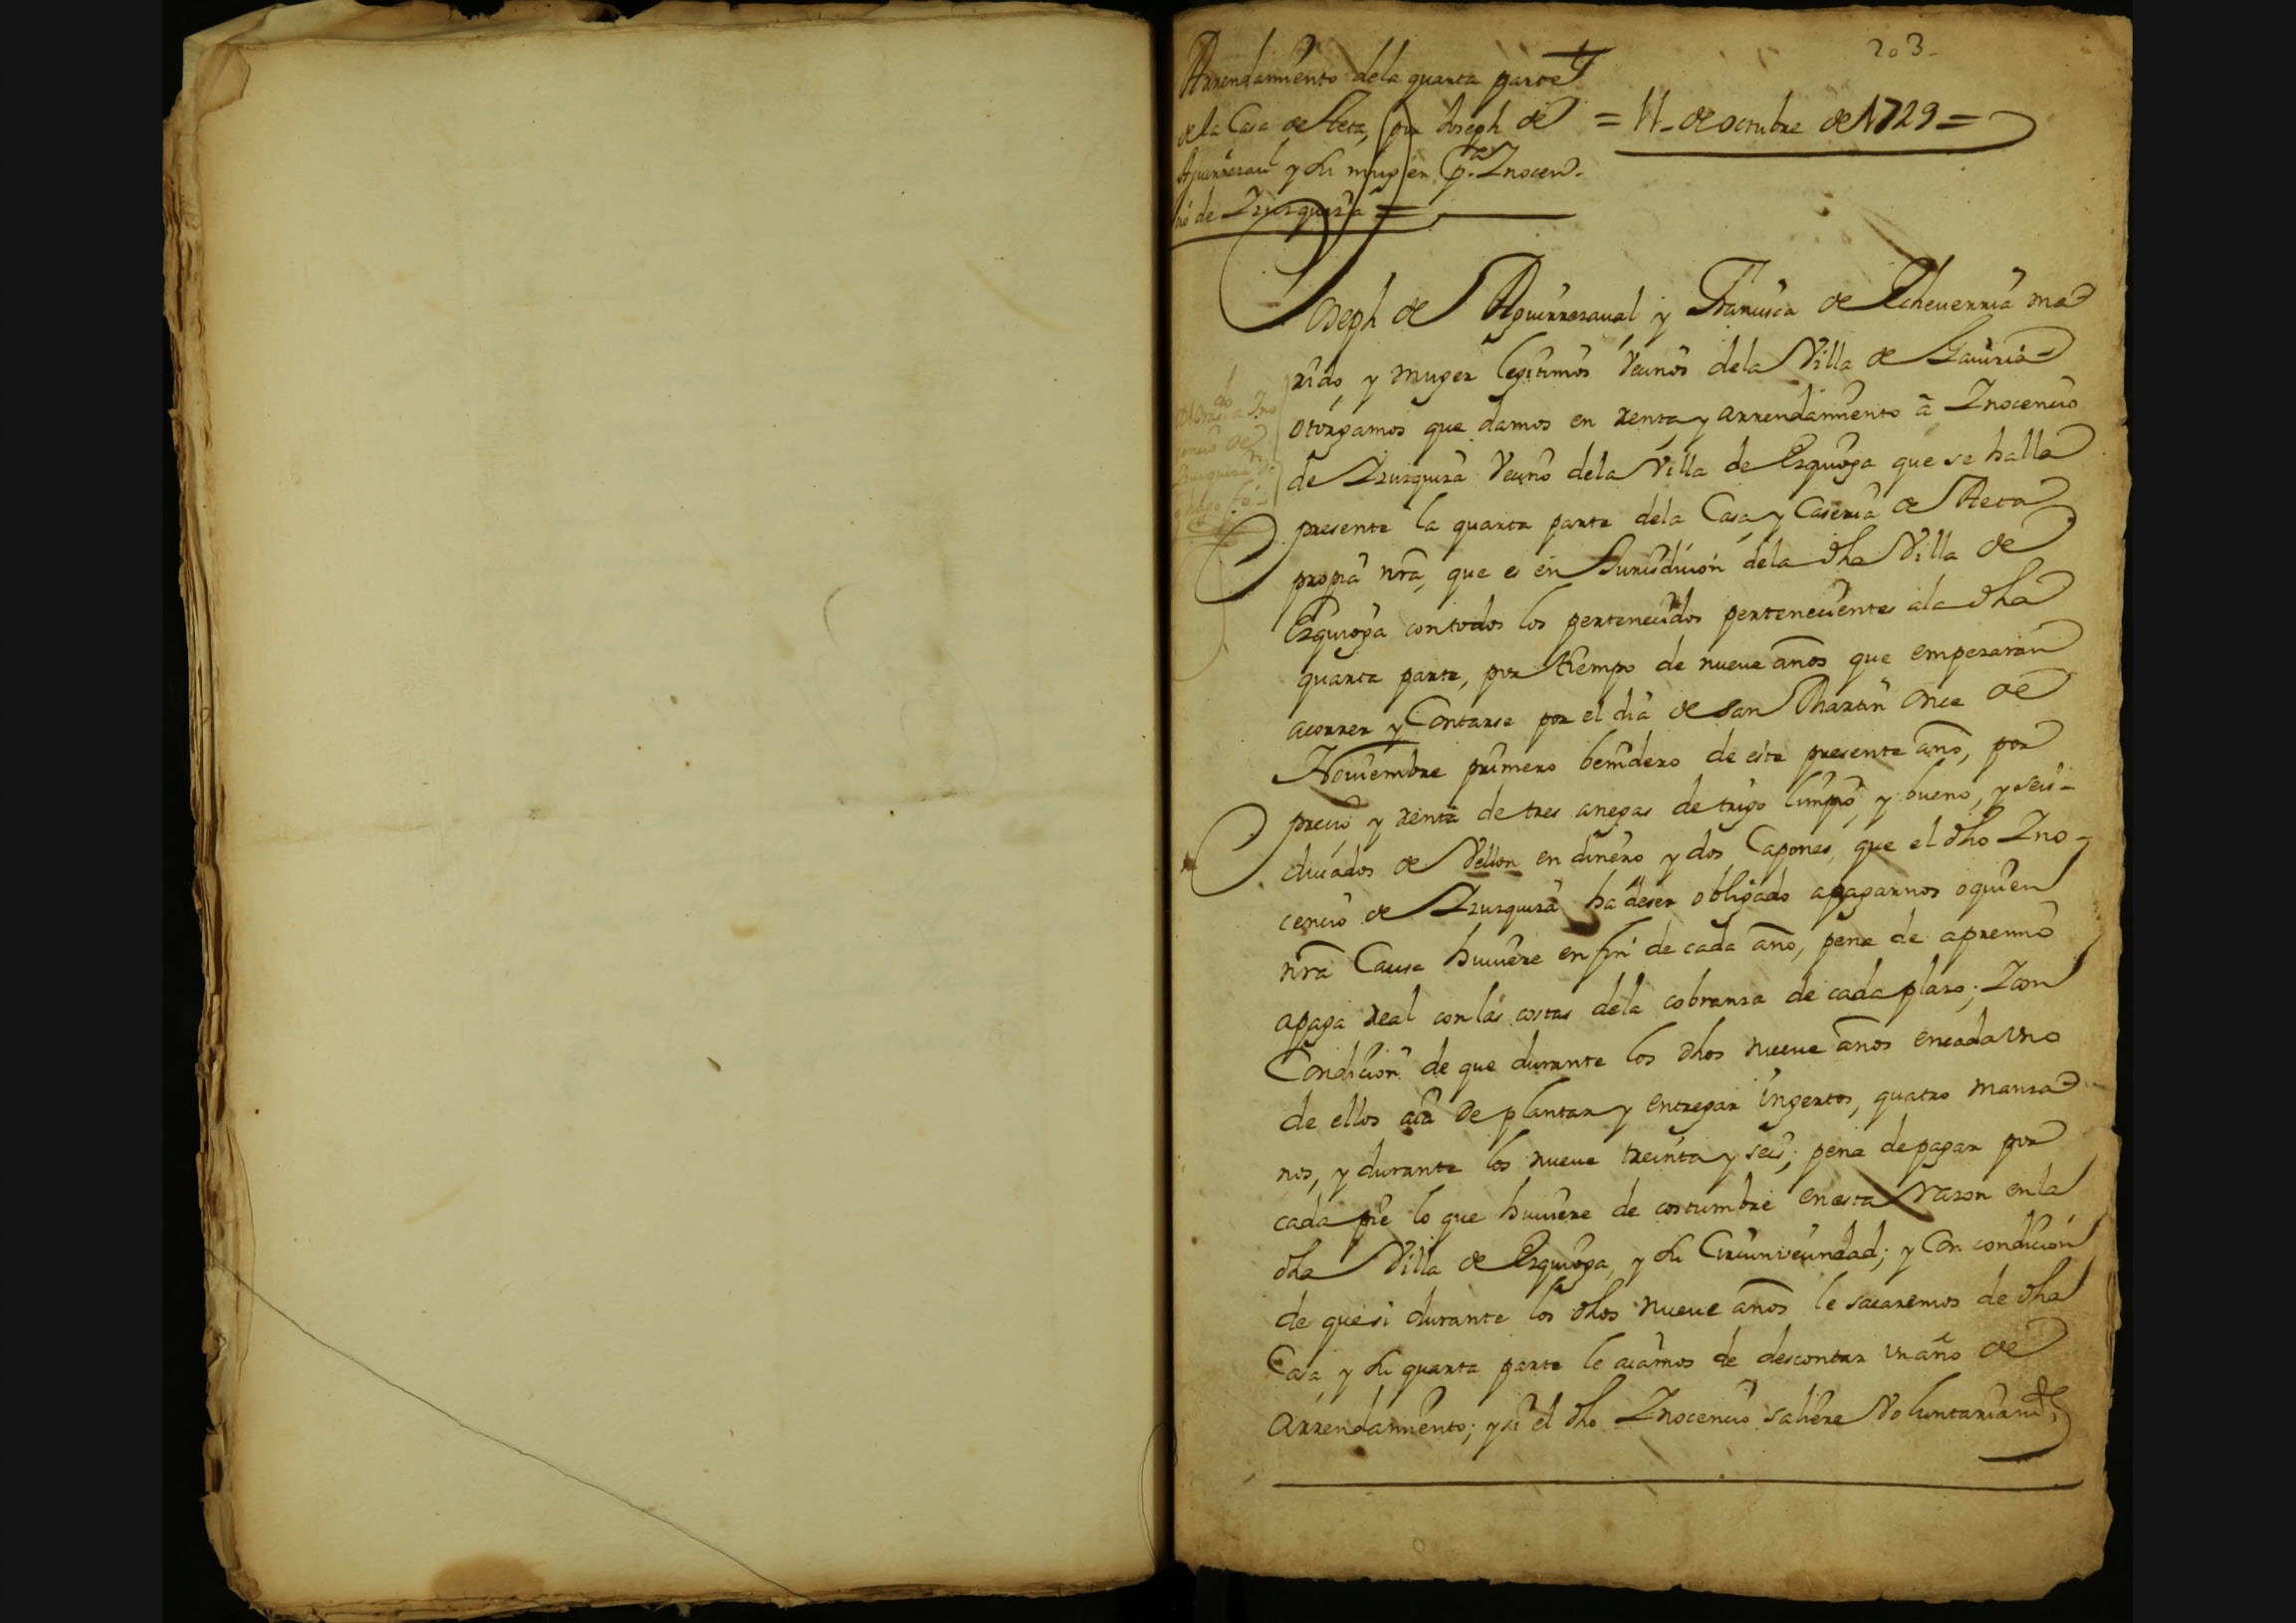 203.
Arrendamiento dela quarta parte
de la Casa de Aeta, por Joseph de
Aguirrezaul y su muger p.ª Inocen-
cio de Izuzquiza =
= 11 - de octubre de 1729 =
Joseph de Aguirrezaual y Francisca de Echeuerria ma
rido, y muger legitimos Vecinos dela Villa de Gauiria
otorgamos que damos en renta y arrendamiento â Inocencio
de Izuzquiza Vecino dela Villa de Ezquioga que se halla
presente la quarta parte dela Casa y Caseria de Aeta
propia nrã, que es en Jurisdicion dela dha Villa de
Ezquioga con todos los pertenecidos pertenecientes ala dha
quarta parte, por tiempo de nueue años que empezaran
acorrer y Contarse por el dia de san Martin Once de
Nouiembre primero benidero de este presente año, por
precio y renta de tres anegas de trigo limpio, y bueno, y seis
ducados de Vellon en dinero y dos Capones, que el dho Ino-
cencio de Izuzquiza ha deser obligado apagarnos o quien
nrã Causa huuiere en fin de cada año, pena de apremio
apaga real con las costas dela cobranza de cada plazo; Icon
Condicion de que durante los dhos nueue años encada vno
de ellos aia de plantar y entregar ingertos, quatro manza
nos, y durante los nueue treinta y seis; pena de pagar por
cada pie lo que huuiere de costumbre en esta razon en la
dha Villa de Ezquioga, y su Circunvecindad; y Con condicion
de que si durante los dhos nueue años le sacaremos de dha
Casa, y su quarta parte le aiamos de descontar vn año de
arrendamiento; y si el dho Inocencio saliere Voluntariamte